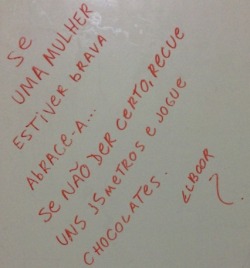 SE
UMA MULHER
ESTIVER BRAVA
ABRACE-A...
SE NÃO DER CERTO, RECUE
UNS 15 METROS E JOGUE
CHOCOLATES.